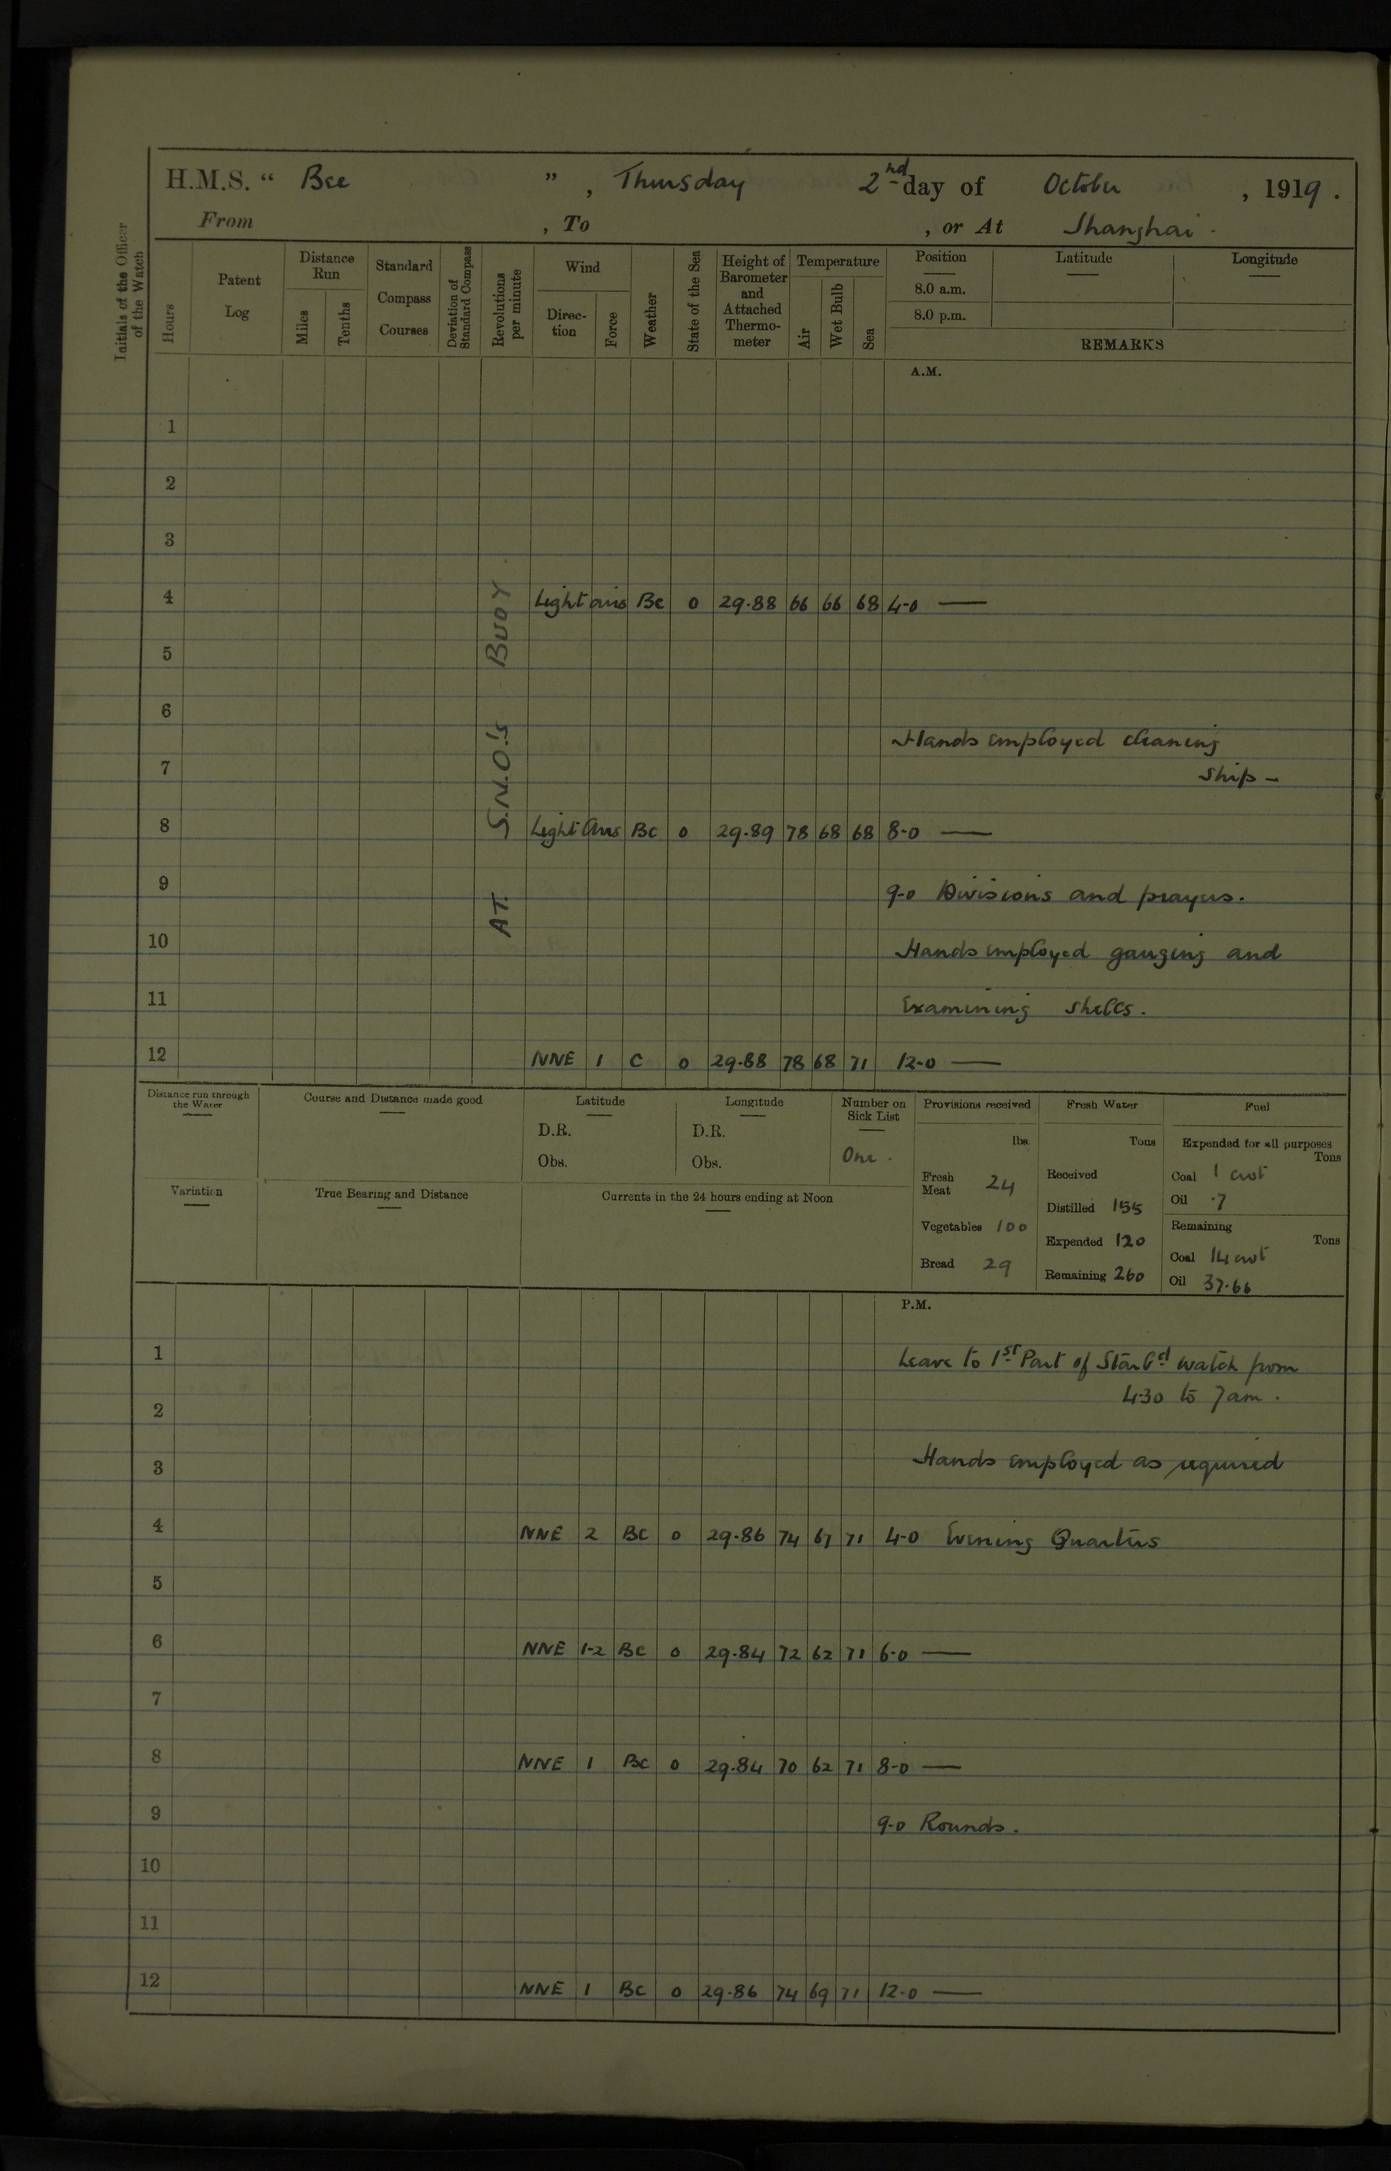 H.M.S. “ Bee ” , Thursday 2nd day of October , 1919 .
From , To , or At Shanghai .
Initials of the Officer of the Watch
Hours
Patent Log
Distance Run
Miles
Tenths
Standard Compass Courses
Deviation of Standard Compass
Revolutions per minute
Wind
Direction
Force
Weather
State of the Sea
Height of Barometer and Attached Thermometer
Temperature
Air
Wet Bulb
Sea
Position Latitude Longitude
8.0 a.m.
8.0 p.m.
REMARKS
A.M.
AT. S.N.O.'s BUOY.
1
2
3
4 Light airs Bc 0 29.88 66 66 68 4-0 —
5
6
Hands employed cleaning
7 Ship –
8 Light Airs Bc 0 29.89 78 68 68 8-0 —
9 9-0 Divisions and prayers.
10 Hands employed gauging and
11 Examining Shells.
12 NNE 1 C 0 29.88 78 68 71 12-0 —
Distance run through the Water
Course and Distance made good
Latitude
D.R.
Obs.
Longitude
D.R.
Obs.
Number on Sick List
One .
Variation
True Bearing and Distance
Currents in the 24 hours ending at Noon
Provisions received
lbs.
Fresh Meat 24
Vegetables 100
Bread 29
Fresh Water
Tons
Received
Distilled 155
Expended 120
Remaining 260
Fuel
Expended for all purposes
Tons
Coal 1 cwt
Oil .7
Remaining
Tons
Coal 14 cwt
Oil 37.66
P.M.
1 Leave to 1st Part of Starbd watch from
4.30 to 7am .
2
3 Hands employed as required
4 NNE 2 BC 0 29.86 74 67 71 4-0 Evening Quarters
5
6 NNE 1-2 BC 0 29.84 72 62 71 6-0 —
7
8 NNE 1 BC 0 29.84 70 62 71 8-0 —
9 9-0 Rounds .
10
11
12 NNE 1 BC 0 29.86 74 69 71 12-0 —